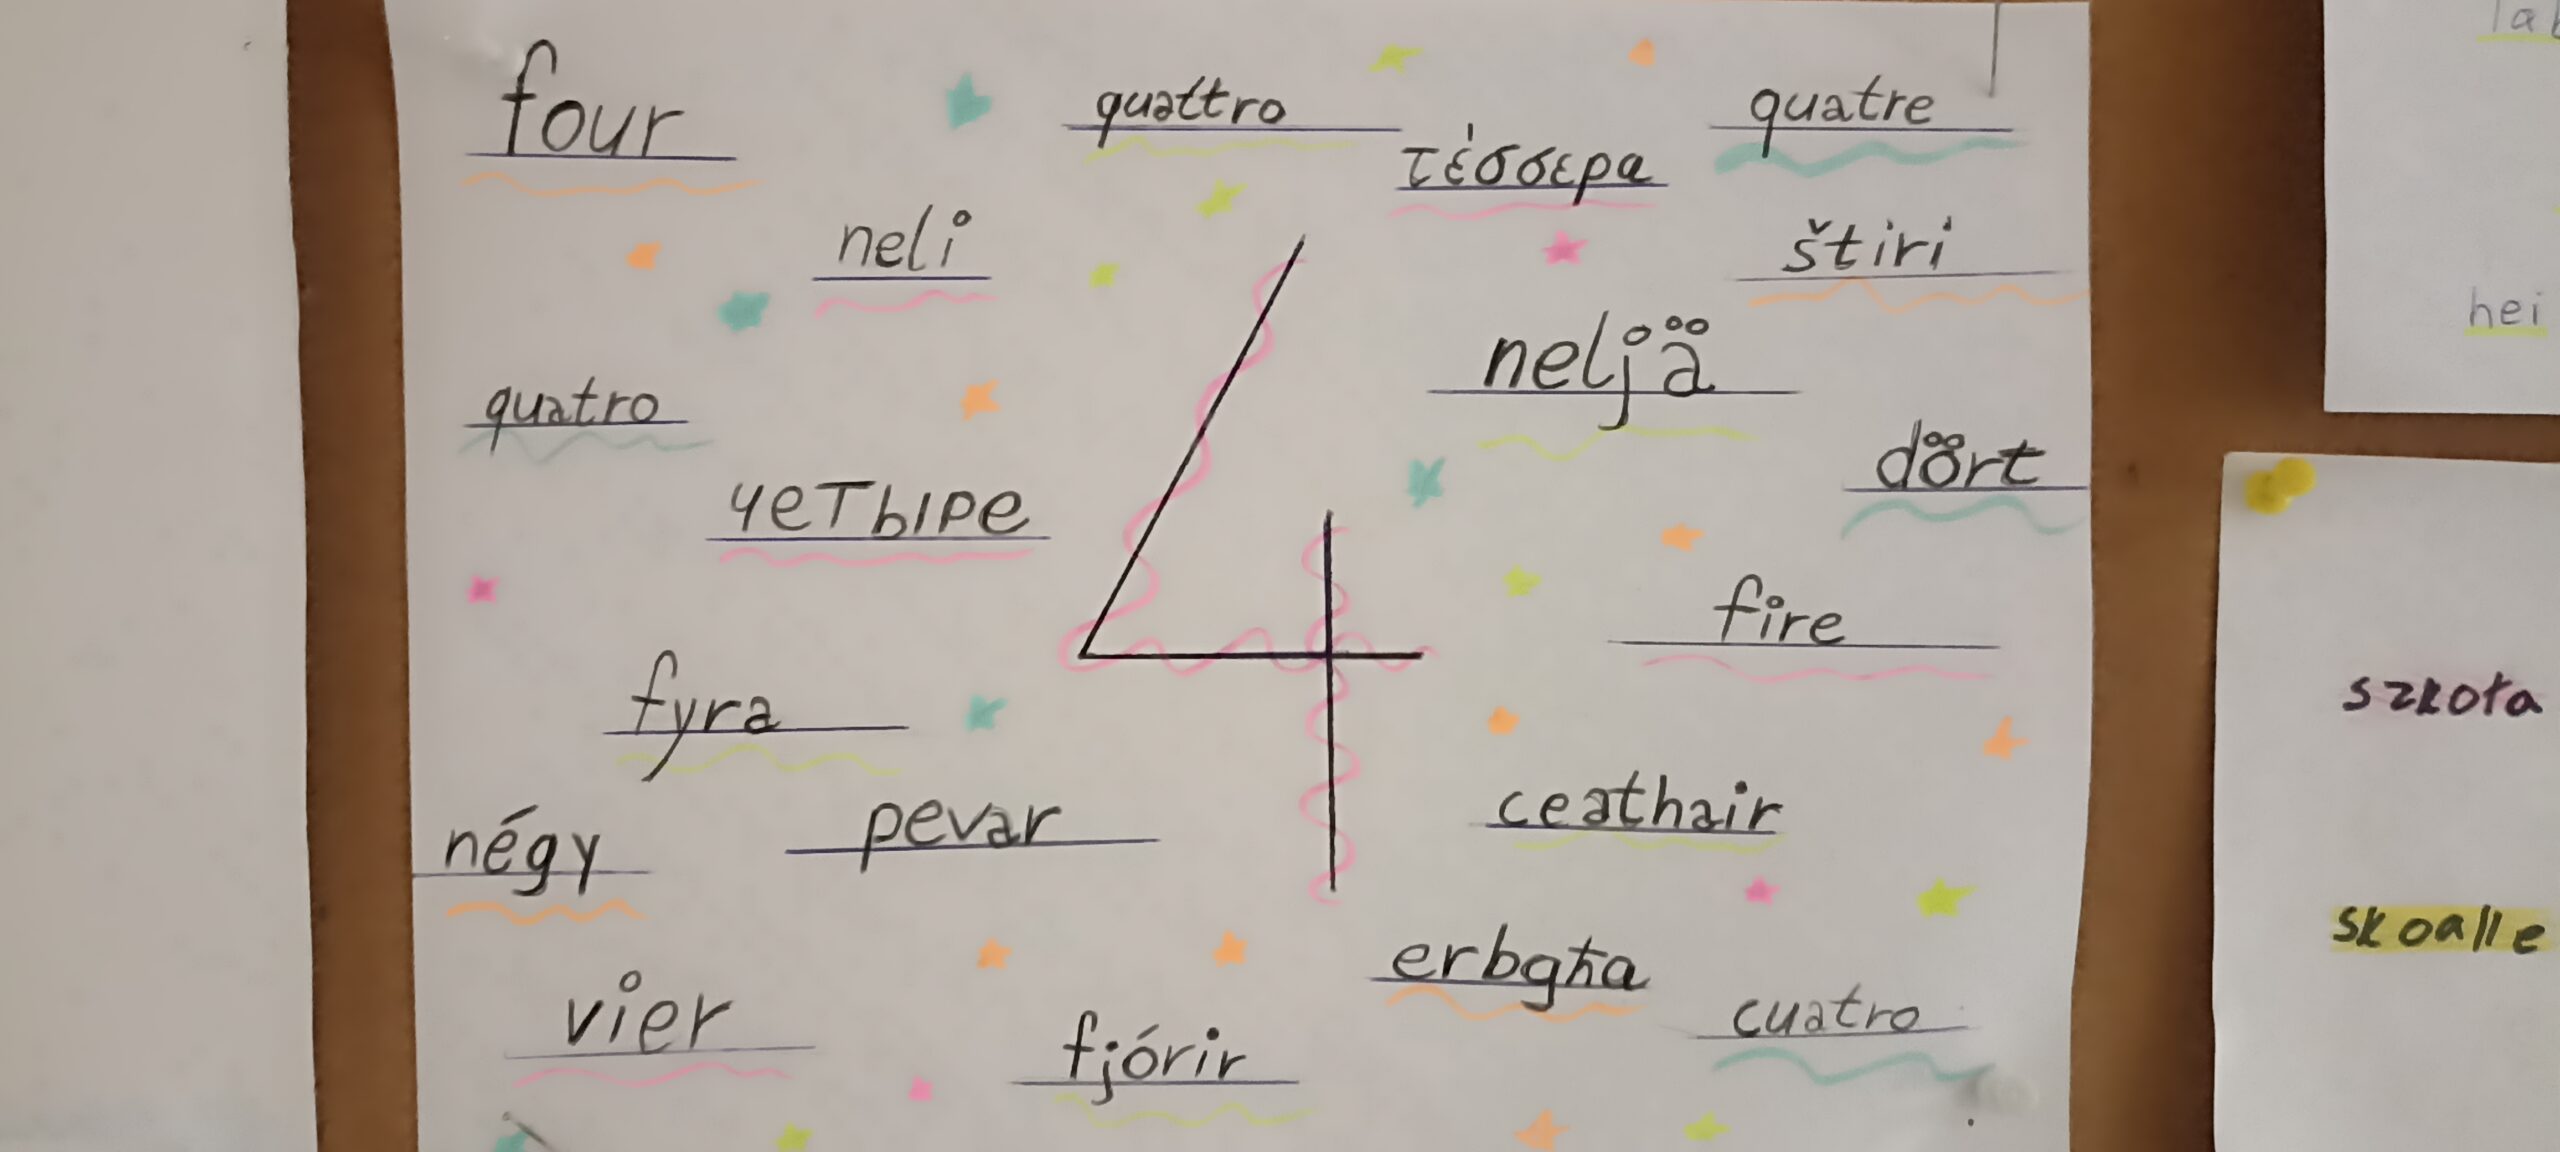 four
quattro
τέσσερα
quatre
neli
štiri
neljä
quatro
dört
четыре
fire
fyra
ceathair
négy
pevar
erbgħa
vier
fjórir
cuatro
4
hei
szkoła
skoalle